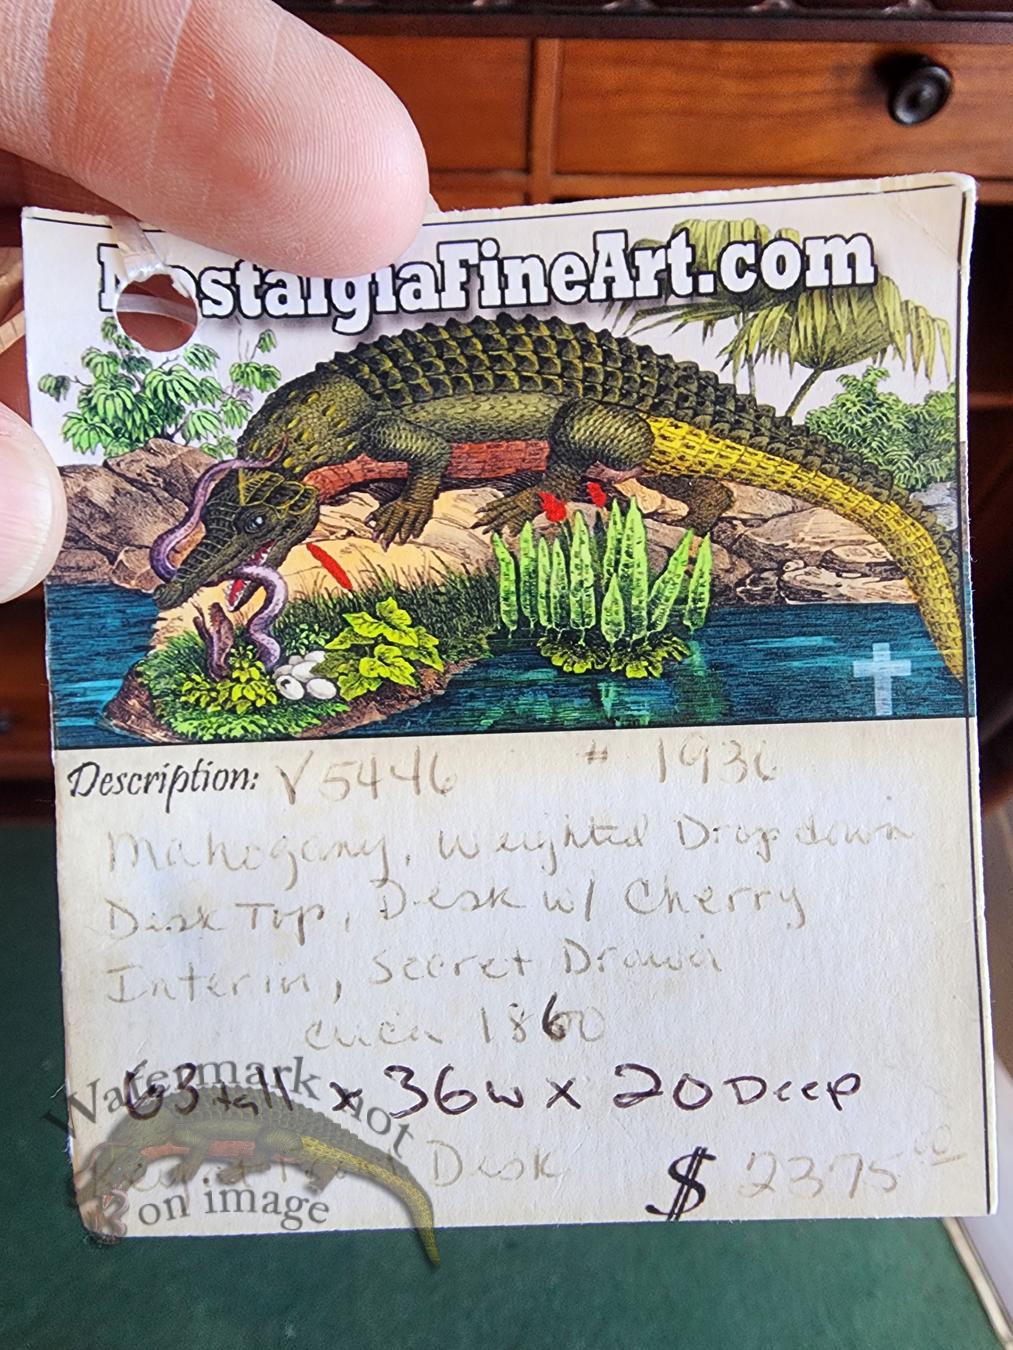 NostalgiaFineArt.com
Description: V5446 # 1936
Mahogany, Weighted Drop down
Desk Top, Desk w/ Cherry
Interior, Secret Drawer
circa 1860
63 tall x 36w x 20 Deep
Desk $ 2375.00
Watermark not
on image